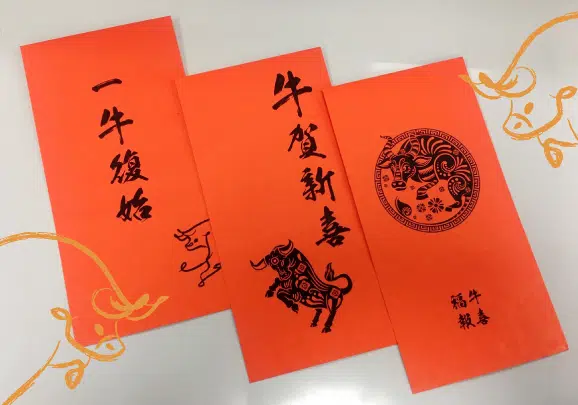 一牛復始
牛賀新喜
牛喜
福報